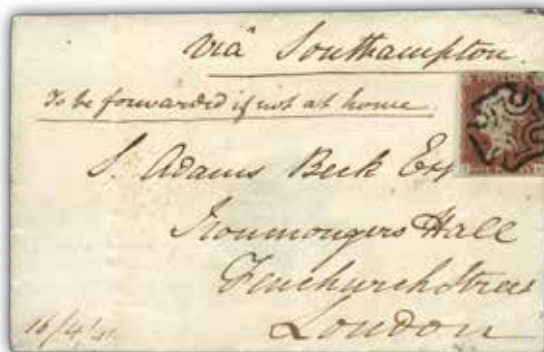 via Southampton.
To be forwarded if not at home
S. Adams Beck Esq
Ironmongers Hall
Fenchurch Stree
London